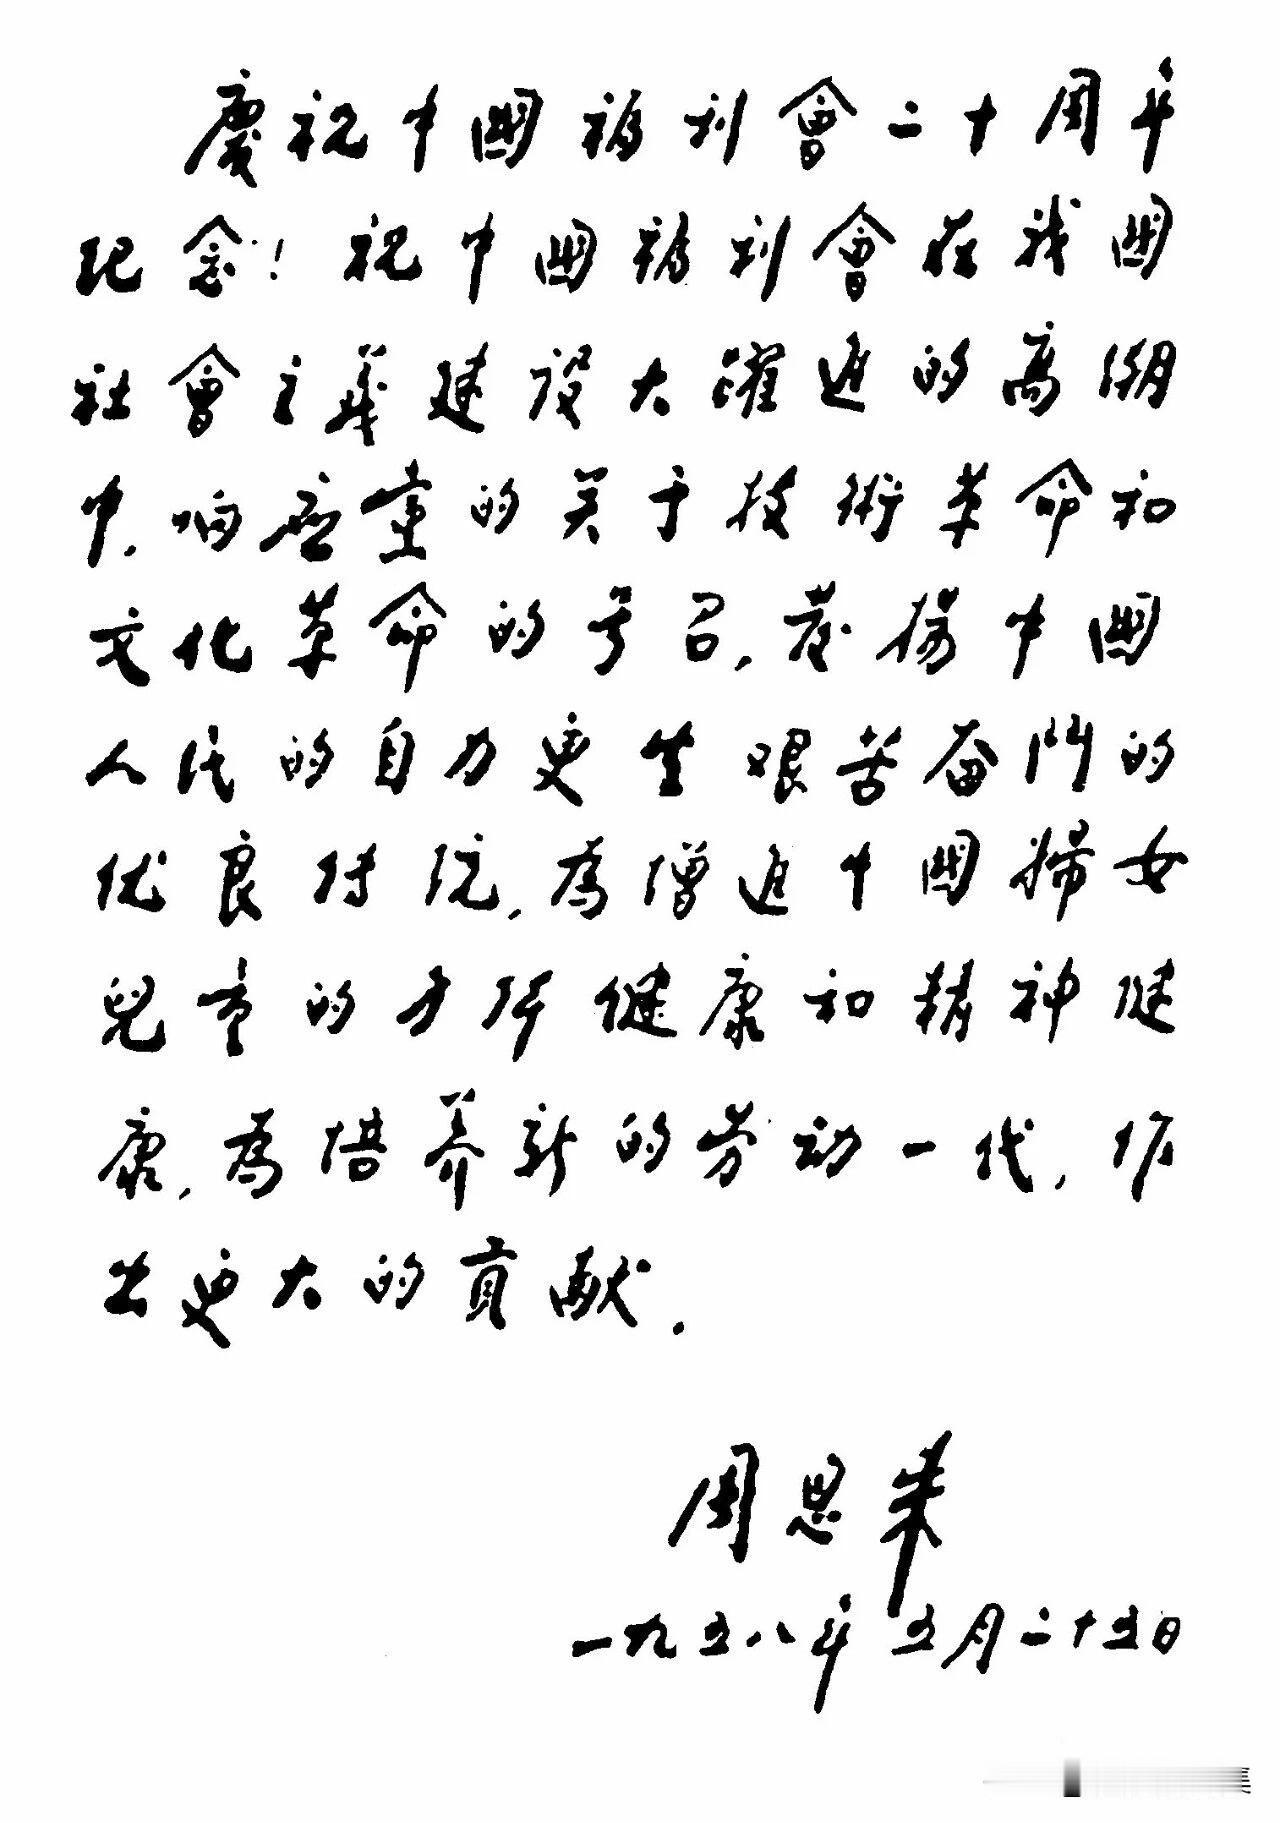 慶祝中國福利會二十周年
纪念！祝中國福利會在我國
社會主義建設大躍進的高潮
中，响應党的关于技術革命和
文化革命的号召，發揚中國
人民的自力更生艰苦奋鬥的
优良传统，為增進中國婦女
兒童的身体健康和精神健
康，為培养新的劳动一代，作
出更大的貢献．
周恩来
一九五八年五月二十五日